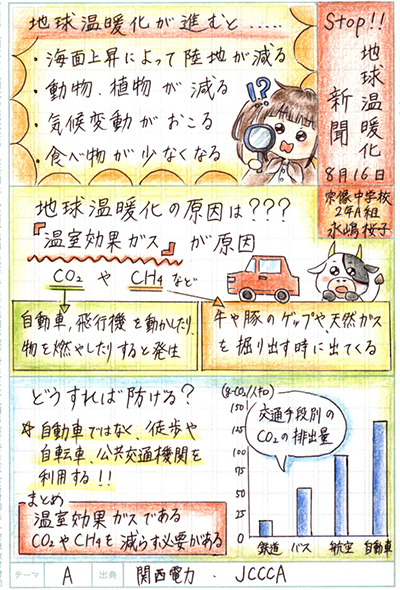 地球温暖化が進むと.....
・海面上昇によって陸地が減る
・動物、植物が減る
・気候変動がおこる
・食べ物が少なくなる
!?
Stop!!
地球温暖化
新聞
8月16日
宗像中学校
2年A組
永嶋桜子
地球温暖化の原因は???
『温室効果ガス』が原因
CO2 や CH4 など
自動車、飛行機を動かしたり、
物を燃やしたりすると発生
牛や豚のゲップや、天然ガス
を掘り出す時に出てくる
どうすれば防げる?
☆自動車ではなく、徒歩や
自転車、公共交通機関を
利用する!!
まとめ
温室効果ガスである
CO2やCH4を減らす必要がある
(g-CO2/人キロ)
150
100
50
0
交通手段別の
CO2の排出量
鉄道 バス 航空 自動車
テーマ A 出典 関西電力・JCCCA